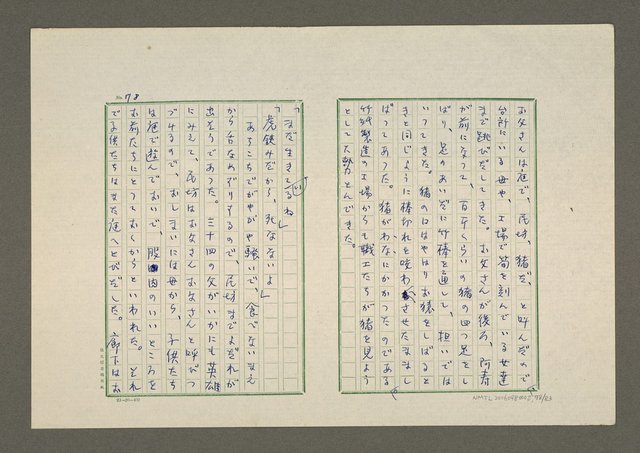 お父さんは庭で、民坊、猪だ、と呼んだので
台所にいる母や、工場で筍を刻んでいる女達
まで跳びだしてきた。お父さんが後ろ、阿寿
が前になって、百斤くらいの猪の四つ足をし
ばり、足のあいだに竹棒を通して、担いでは
いってきた。猪の口はやはりお猿をしばると
きと同じように棒切れを咬ませたままし
ばってあった。猪がわなにかかつたのである
竹紙製造の工場からも職工たちが猪を見よう
として大勢とんできた。
No. 78
「まだ生きているね」
「虎鋏みだから、死なないよ」
あちこちでがやがや騒いで、食べないまえ
から舌なめずりするので、民坊までよだれが
出そうであった。三十四の父がいかにも英雄
にみえて、民坊はお父さんお父さんと呼びつ
づけるので、おしまいには母から、子供たち
は庭で遊んでおいで、股肉のいいところを
お前たちにとっておくからといわれた。それ
で子供たちはまた庭へとびだした。廊下はお
NMTL 20160980002 78/83